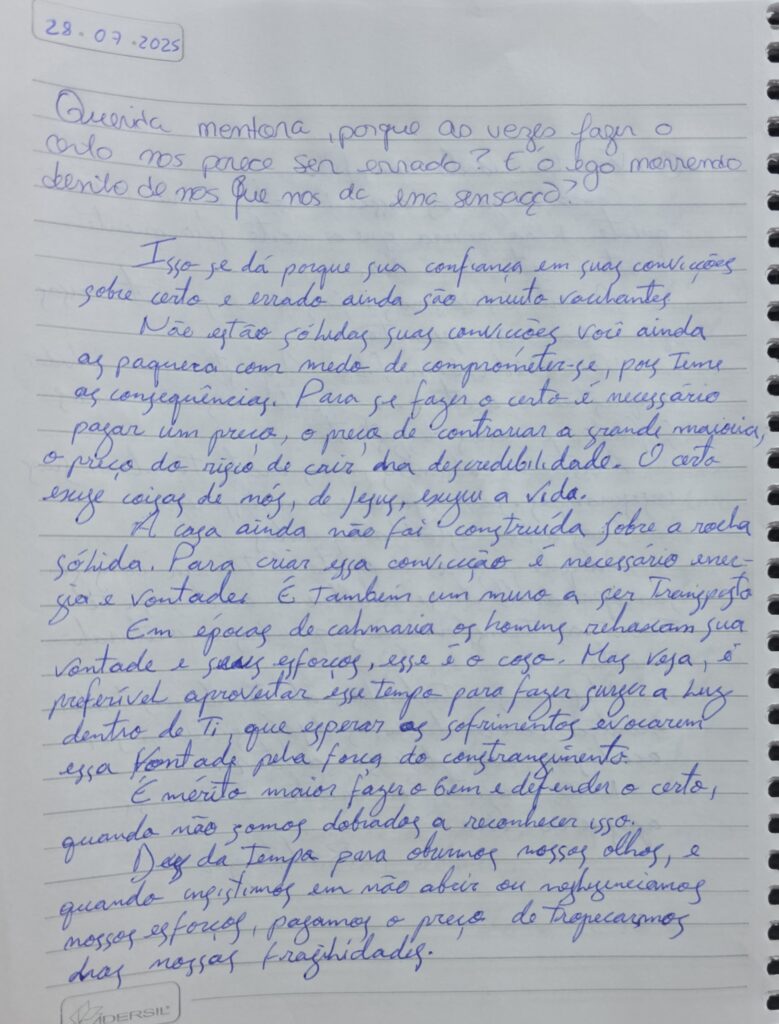 28.07.2025
Querida mentora, porque as vezes fazer o
certo nos parece ser errado? E o ego morrendo
dentro de nos que nos da essa sensação?
Isso se dá porque sua confiança em suas convicções
sobre certo e errado ainda são muito vacilantes
Não estão sólidas suas convicções você ainda
as paquera com medo de comprometer-se, pois teme
as consequências. Para se fazer o certo é necessário
pagar um preço, o preço de contrariar a grande maioria,
o preço do risco de cair na descredebilidade. O certo
exige coisas de nós, de Jesus, exigiu a vida.
A casa ainda não foi construída sobre a rocha
sólida. Para criar essa convicção é necessário ener-
gia e vontade. É também um muro a ser transposto
Em épocas de calmaria os homens relaxam sua
vontade e seus esforços, esse é o caso. Mas veja, é
preferível aproveitar esse tempo para fazer surgir a luz
dentro de ti, que esperar os sofrimentos evocarem
essa vontade pela força do constrangimento.
É mérito maior fazer o bem e defender o certo,
quando não somos dobrados a reconhecer isso.
Deus da tempo para abrirmos nossos olhos, e
quando insistimos em não abrir ou negligenciamos
nossos esforços, pagamos o preço de tropeçarmos
nas nossas fragilidades.
IDERSIL